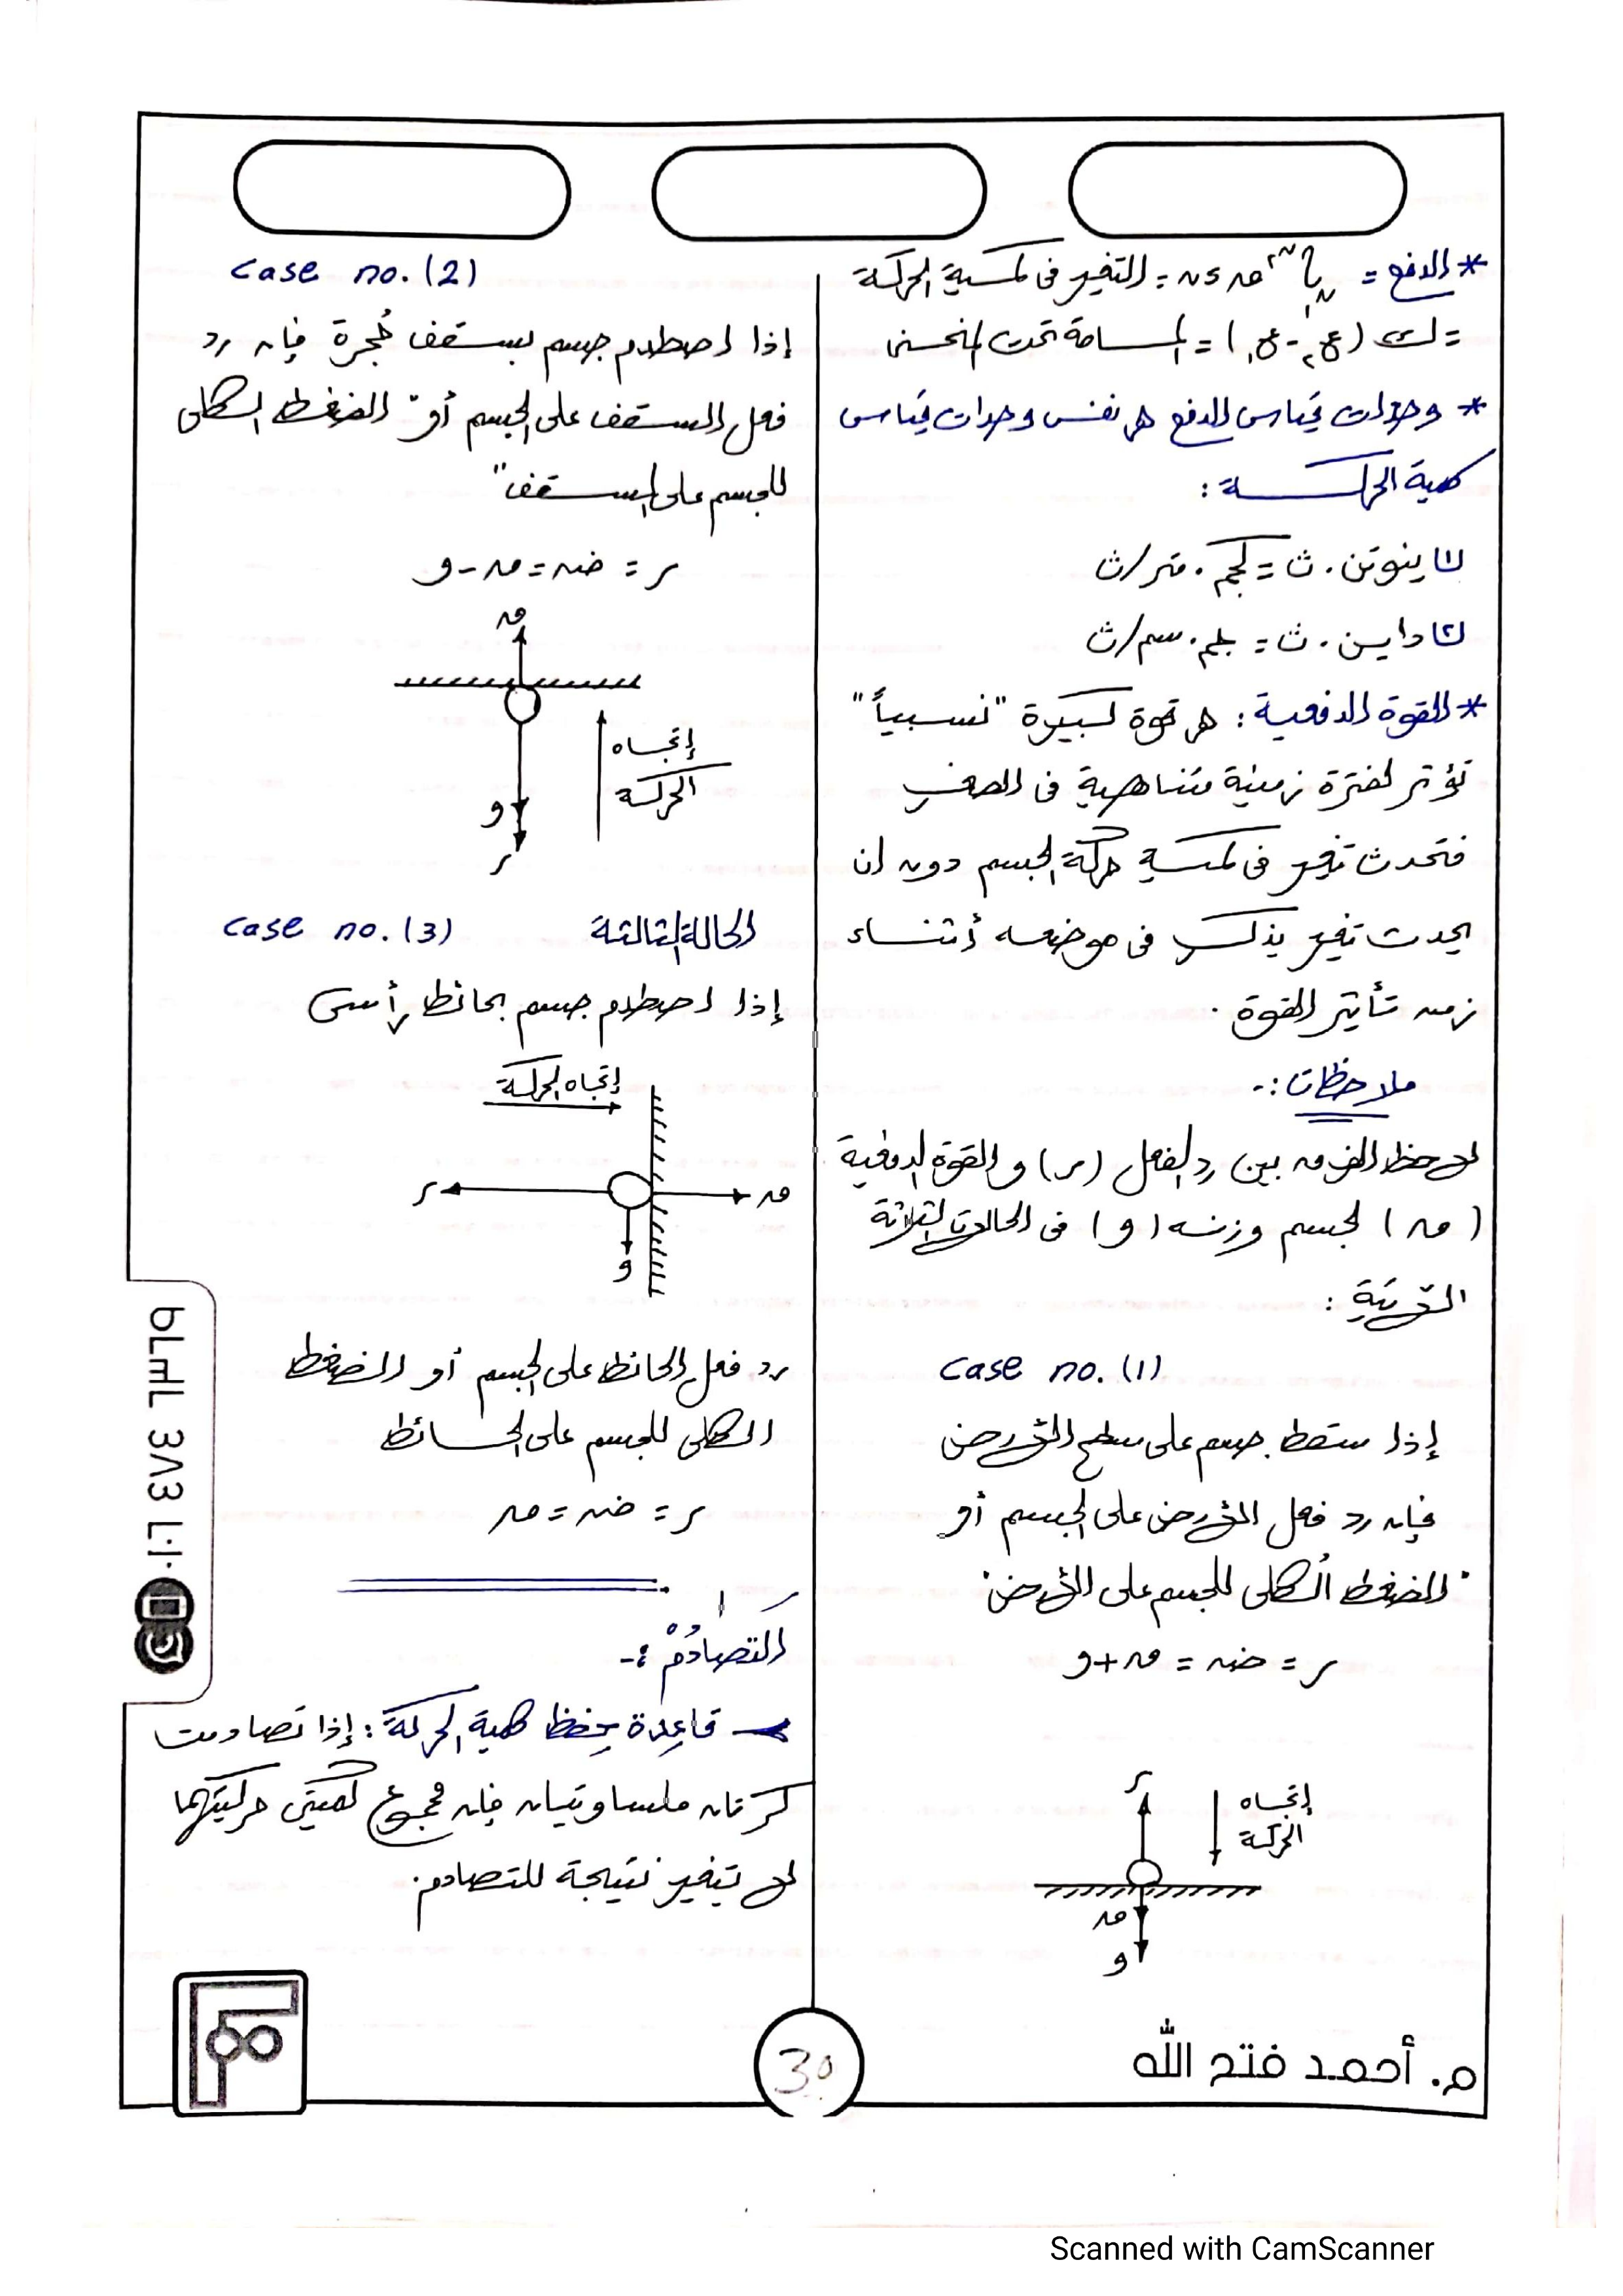 * الدفع = ∫ن١^ن٢ ق ءن = التغير فى كمية الحركة
= ك (ع٢ - ع١) = المساحة تحت المنحنى
* وحدات قياس الدفع هى نفس وحدات قياس
كمية الحركة :
١) نيوتن . ث = كجم . متر/ث
٢) داين . ث = جم . سم/ث
* القوة الدفعية : هى قوة كبيرة "نسبياً"
تؤثر لفترة زمنية متناهية فى الصغر
فتحدث تغير فى كمية حركة الجسم دون ان
يحدث تغير يذكر فى موضعه أثناء
زمن تأثير القوة .
ملاحظات :-
لاحظ الفرق بين رد الفعل (ر) و القوة الدفعية
(ق) لجسم وزنه (و) فى الحالات الثلاثة
الآتية :
case no. (1)
إذا سقط جسم على سطح الأرض
فإن رد فعل الأرض على الجسم أو
"الضغط الكلى للجسم على الأرض"
ر = ضـ = ق + و
ر
إتجاه
الحركة
ق
و
case no. (2)
إذا اصطدم جسم بسقف حُجرة فإن رد
فعل السقف على الجسم أو "الضغط الكلى
للجسم على السقف"
ر = ضـ = ق - و
ق
إتجاه
الحركة
و
ر
الحالة الثالثة case no. (3)
إذا اصطدم جسم بحائط رأسى
إتجاه الحركة
ر
ق
و
رد فعل الحائط على الجسم أو الضغط
الكلى للجسم على الحائط
ر = ضـ = ق
التصادُمْ :-
قاعدة حِفظ كمية الحركة : إذا تصادمت
كرتان ملساوتيان فإن مجموع كميتى حركيتهما
لا تيغير نتيجة للتصادم .
م. أحمد فتح الله
30
Scanned with CamScanner